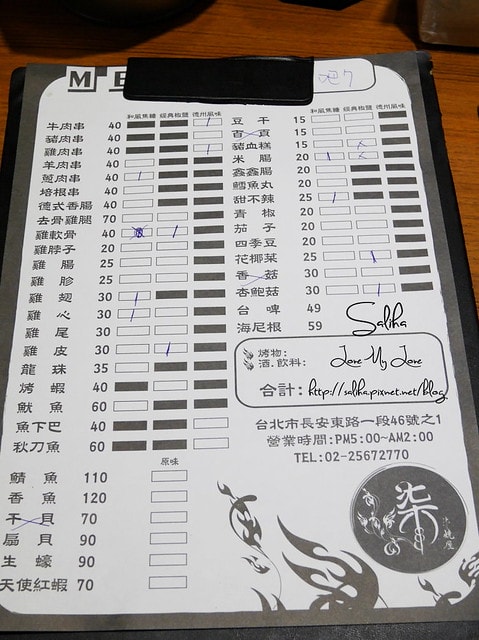 M
吧7
和風焦糖 經典椒鹽 德州風味
牛肉串 40
豬肉串 40
雞肉串 40
羊肉串 40
蔥肉串 40
培根串 40
德式香腸 40
去骨雞腿 70
雞軟骨 40
雞脖子 20
雞腸 20
雞胗 20
雞翅 30
雞心 30
雞尾 30
雞皮 30
龍珠 35
烤蝦 40
魷魚 60
魚下巴 40
秋刀魚 60
原味
鯖魚 110
香魚 120
干貝 70
扇貝 90
生蠔 90
天使紅蝦 70
和風焦糖 經典椒鹽 德州風味
豆干 15
百頁 15
豬血糕 15
米腸 20
鑫鑫腸 20
鱈魚丸 20
甜不辣 25
青椒 20
茄子 20
四季豆 20
花椰菜 25
香菇 30
杏鮑菇 30
台啤 49
海尼根 59
Saliha
烤物:
酒.飲料:
Love My Love
合計:
http://saliha.pixnet.net/blog
台北市長安東路一段46號之1
營業時間:PM5:00~AM2:00
TEL:02-25672770
柒